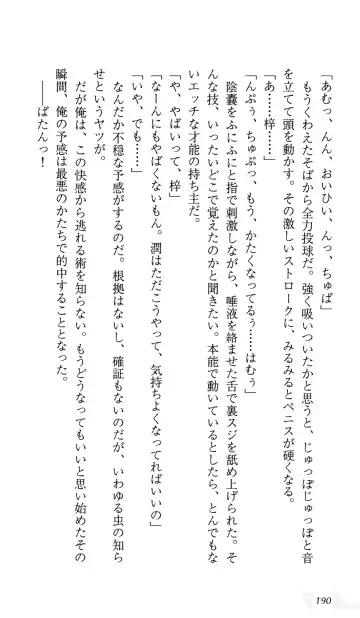 「あむっ、んん、おいひい、んっ、ちゅぱ」
もうくわえたそばから全力投球だ。強く吸いついたかと思うと、じゅっぽじゅっぽと音
を立てて頭を動かす。その激しいストロークに、みるみるとペニスが硬くなる。
「あ……梓……」
「んぷぅ、ちゅぷっ、もう、かたくなってるぅ……はむぅ」
陰嚢をふにふにと指で刺激しながら、唾液を絡ませた舌で裏スジを舐め上げられた。そ
んな技、いったいどこで覚えたのかと聞きたい。本能で動いているとしたら、とんでもな
いエッチな才能の持ち主だ。
「や、やばいって、梓」
「なーんにもやばくないもん。潤はただこうやって、気持ちよくなってればいいの」
「いや、でも……」
なんだか不穏な予感がするのだ。根拠はないし、確証もないのだが、いわゆる虫の知ら
せというヤツが。
だが俺は、この快感から逃れる術を知らない。もうどうなってもいいと思い始めたその
瞬間、俺の予感は最悪のかたちで的中することとなった。
――ばたんっ！
190